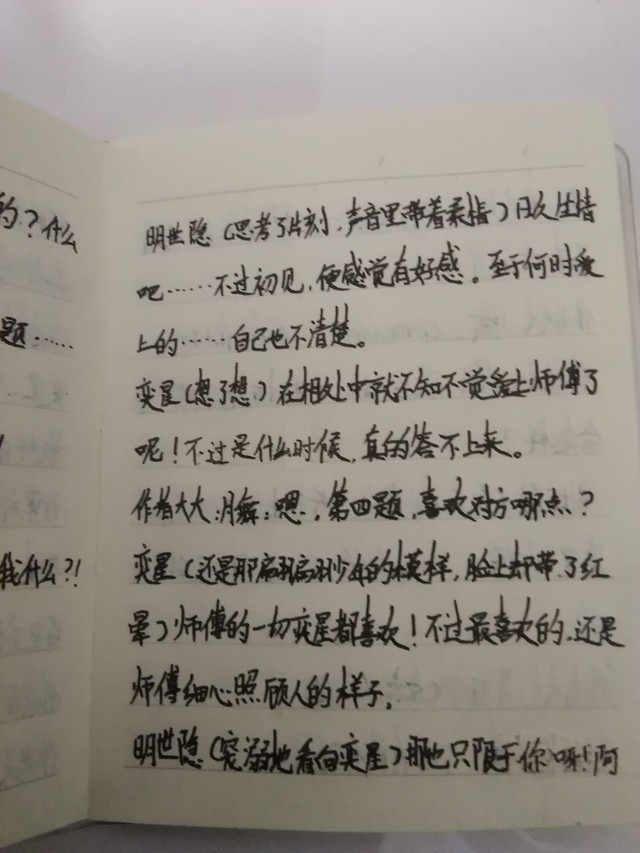 的？什么
题……
！
我什么？！
明世隐（思考了片刻，声音里带着柔情）日久生情
吧……不过初见，便感觉有好感。至于何时爱
上的……自己也不清楚。
奕星（想了想）在相处中就不知不觉爱上师傅了
呢！不过是什么时候，真的答不上来。
作者大大：月舞：嗯，第四题，喜欢对方哪点？
奕星（还是那扁扁扁扁少年的模样，脸上却带了红
晕）师傅的一切奕星都喜欢！不过最喜欢的，还是
师傅细心照顾人的样子。
明世隐（宠溺地看向奕星）那也只限于你呀！阿